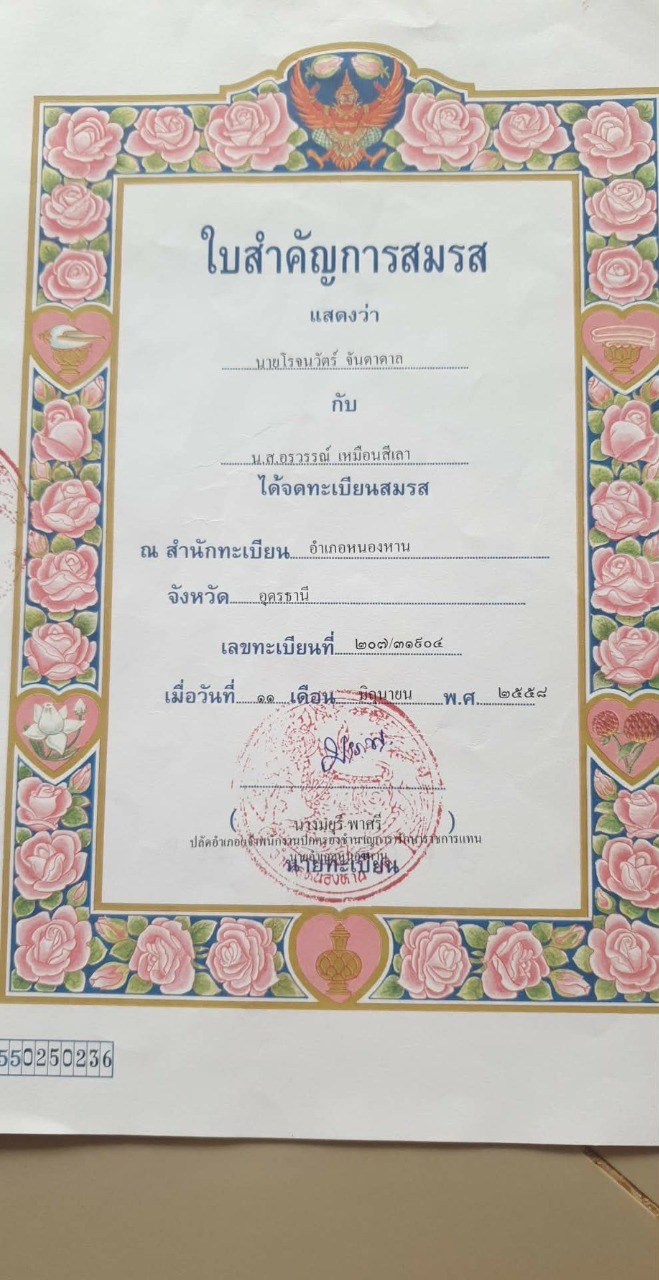 ใบสำคัญการสมรส
แสดงว่า
นายโรจนวัตร์ จันดาดาล
กับ
น.ส.อรวรรณ์ เหมือนสีเลา
ได้จดทะเบียนสมรส
ณ สำนักทะเบียน อำเภอหนองหาน
จังหวัด อุดรธานี
เลขทะเบียนที่ ๒๐๗/๓๑๙๐๔
เมื่อวันที่ ๑๑ เดือน มิถุนายน พ.ศ. ๒๕๕๘
( นางมยุรี พาศรี )
นายทะเบียน
550250236